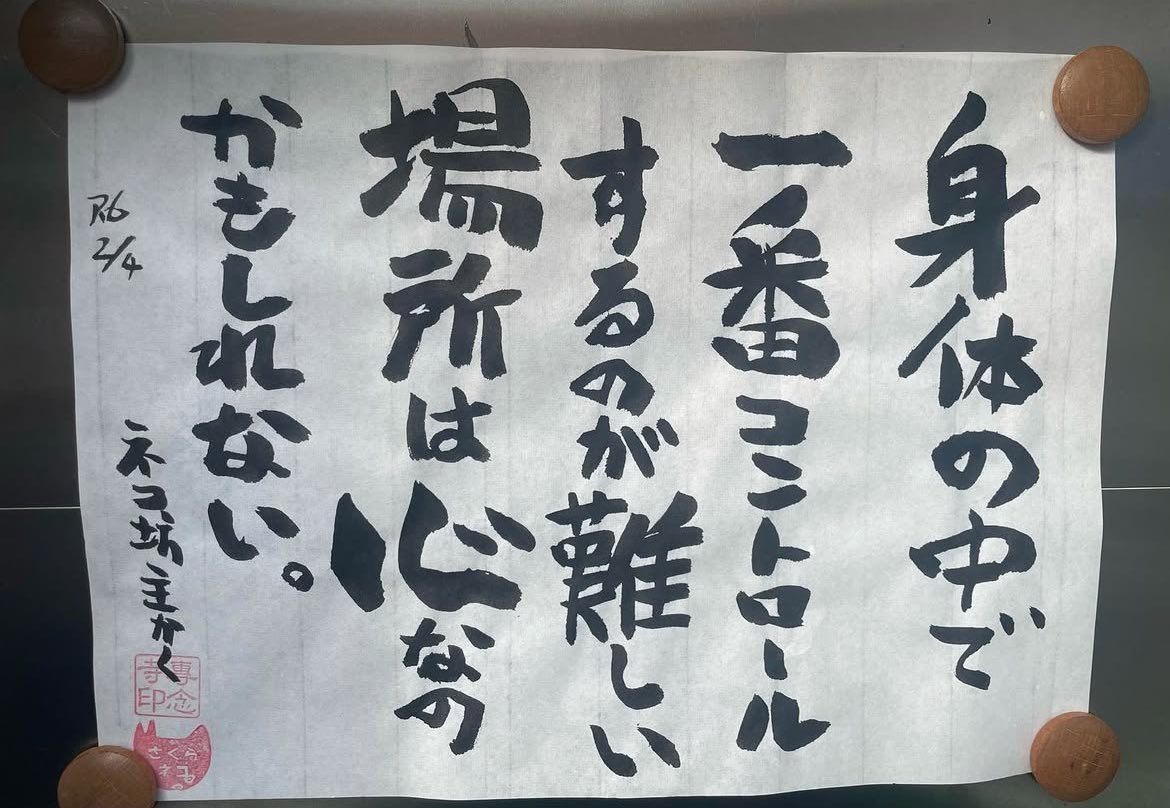 身体の中で
一番コントロール
するのが難しい
場所は心なの
かもしれない。
R6
2/4
ネコ坊主かく
専念
寺印
さくら
ネコ。